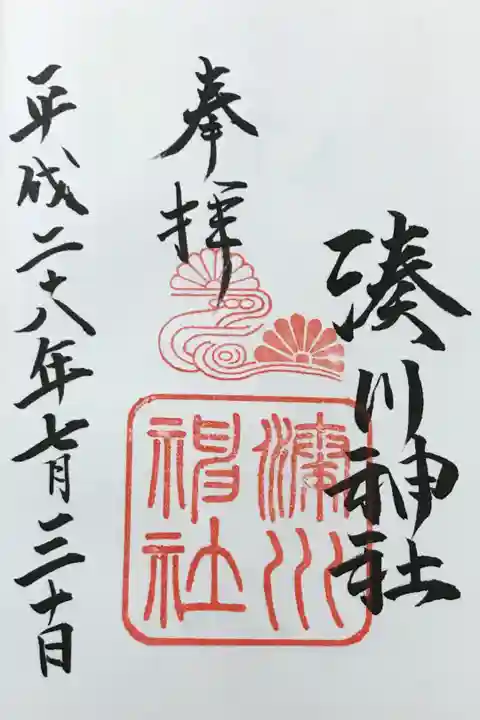 湊川神社
奉拝
湊川神社
平成二十八年七月三十日